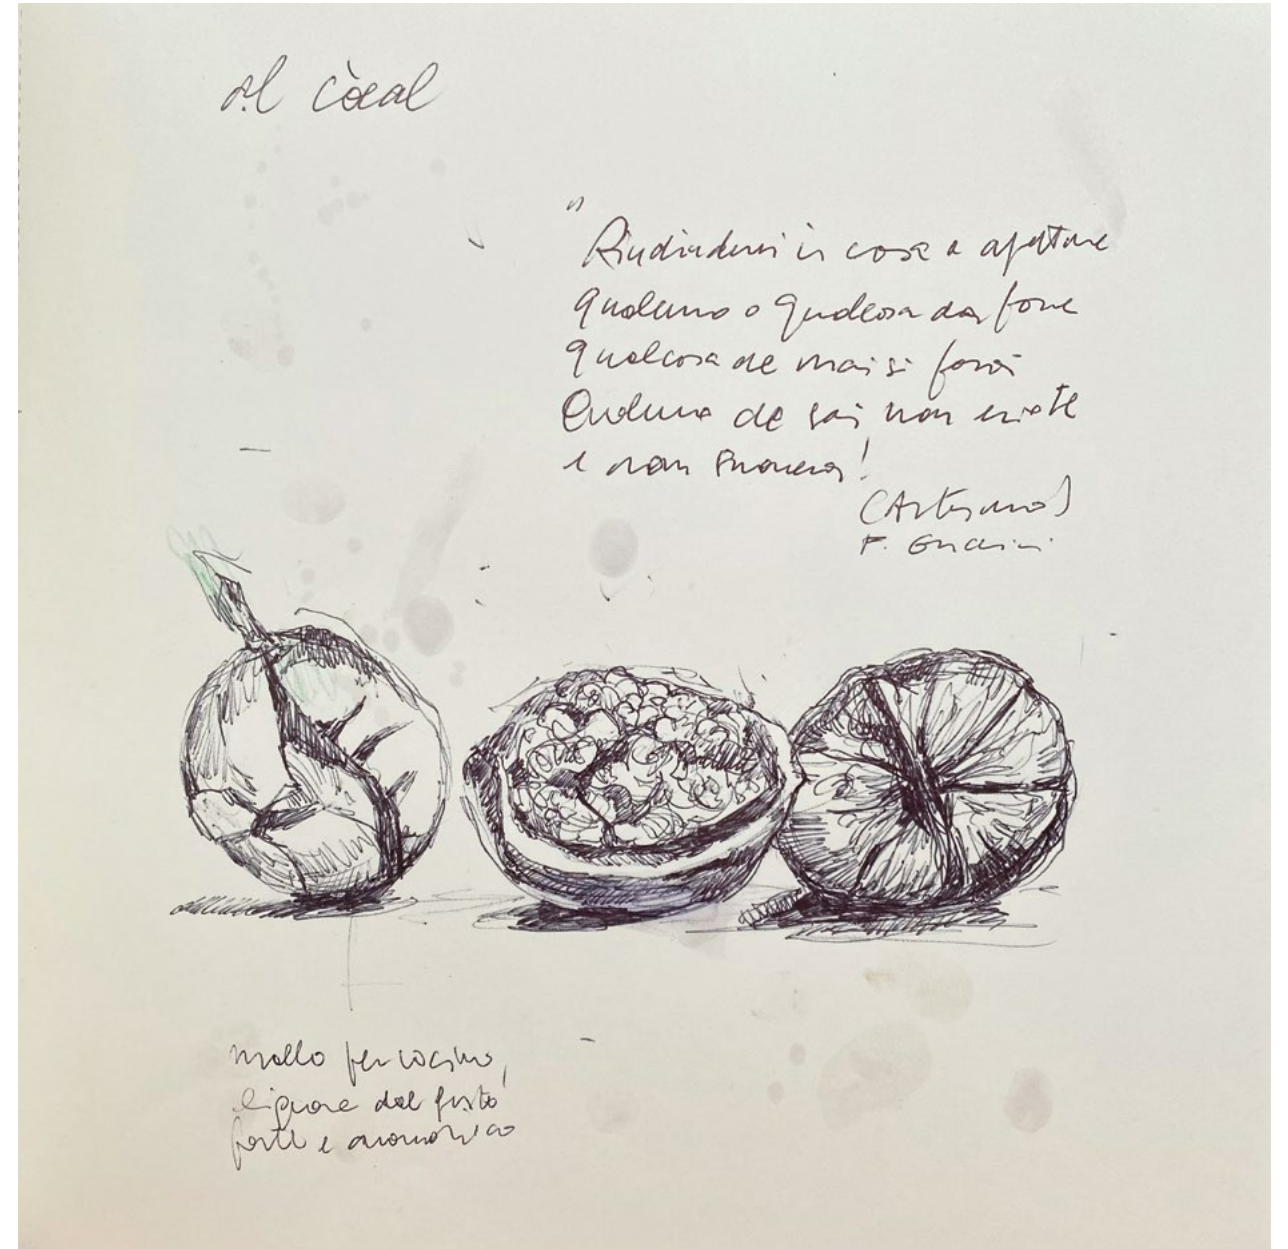 Al còcal
"Rinchiudersi in casa a aspettare
qualcuno o qualcosa da fare
qualcosa che mai si farà
Qualcuno che sai, non esiste
e non suonerà!
(Autogrill)
F. Guccini
mallo per nocino,
liquore dal gusto
forte e aromatico